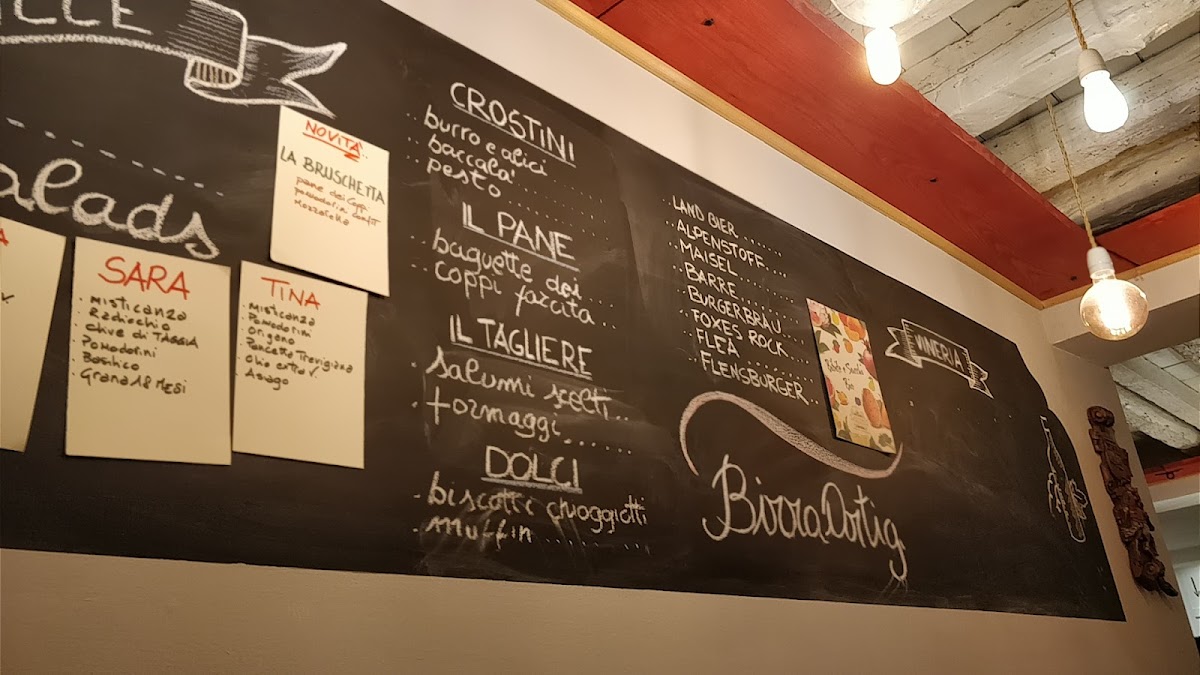 alads
NOVITÀ..
LA BRUSCHETTA
pane dei Coppi
pomodorini confit
Mozzarella
SARA
• Misticanza
• Radicchio
• Olive di TAGGIA
• Pomodorini
• Basilico
• Grana 18 MESI
TINA
• Misticanza
• Pomodorini
• Origano
• Pancetta Trevigiana
• Olio extra V.
• Asiago
CROSTINI
burro e alici
baccala'
pesto
IL PANE
baguette dei
coppi farcita
IL TAGLIERE
salumi scelti
formaggi
DOLCI
biscotti chioggiotti
muffin
LAND BIER
ALPENSTOFF
MAISEL
BARRE
BURGERBRAU
FOXES ROCK
FLEA
FLENSBURGER
Birra Artig
Bibite e Succhi
Bio
VINERIA